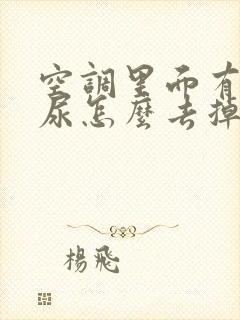 空調里而有
尿怎麼去掉
楊飛